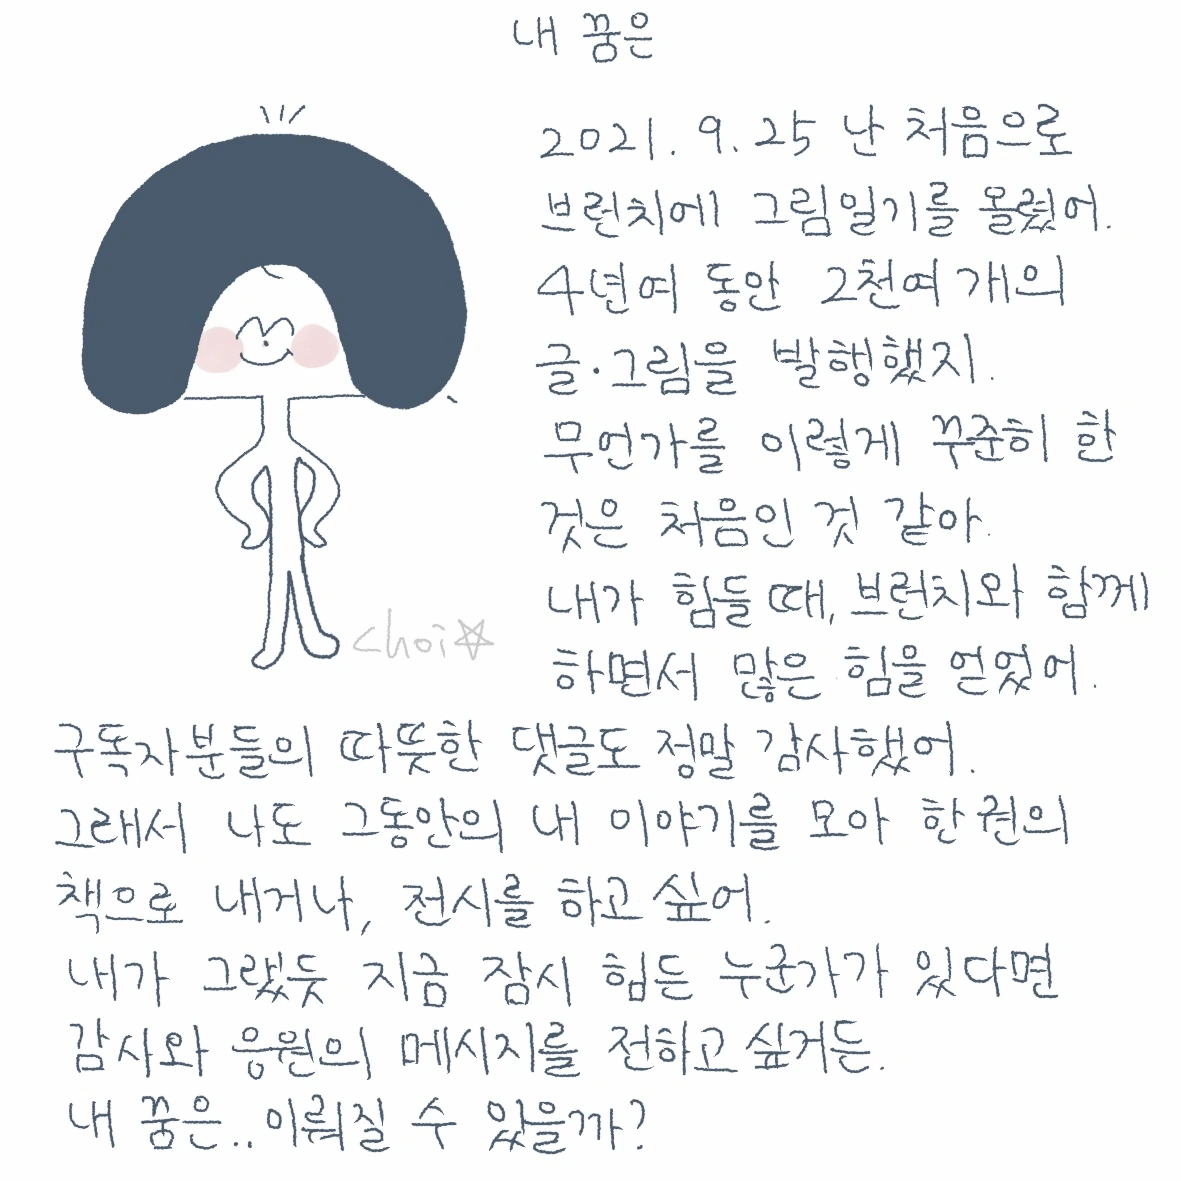 내 꿈은
2021. 9. 25 난 처음으로
브런치에 그림일기를 올렸어.
4년여 동안 2천여 개의
글·그림을 발행했지.
무언가를 이렇게 꾸준히 한
것은 처음인 것 같아.
내가 힘들 때, 브런치와 함께
하면서 많은 힘을 얻었어.
choi☆
구독자분들의 따뜻한 댓글도 정말 감사했어.
그래서 나도 그동안의 내 이야기를 모아 한 권의
책으로 내거나, 전시를 하고 싶어.
내가 그랬듯 지금 잠시 힘든 누군가가 있다면
감사와 응원의 메시지를 전하고 싶거든.
내 꿈은.. 이뤄질 수 있을까?